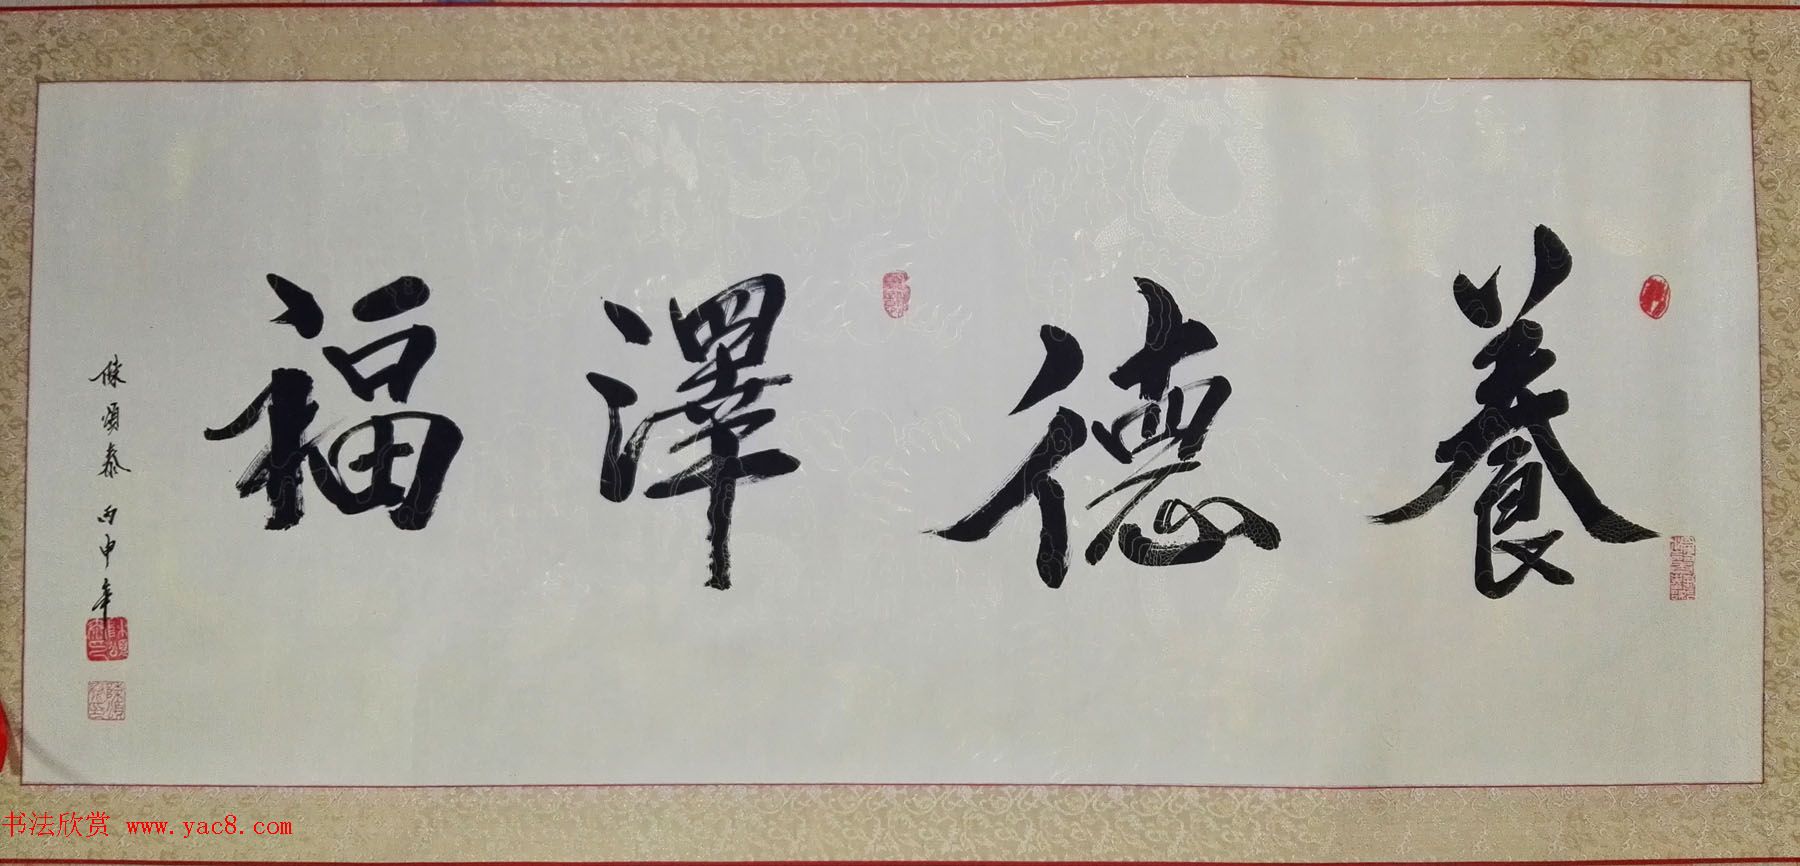 養德澤福
陳頌泰 丙申年
书法欣赏 www.yac8.com